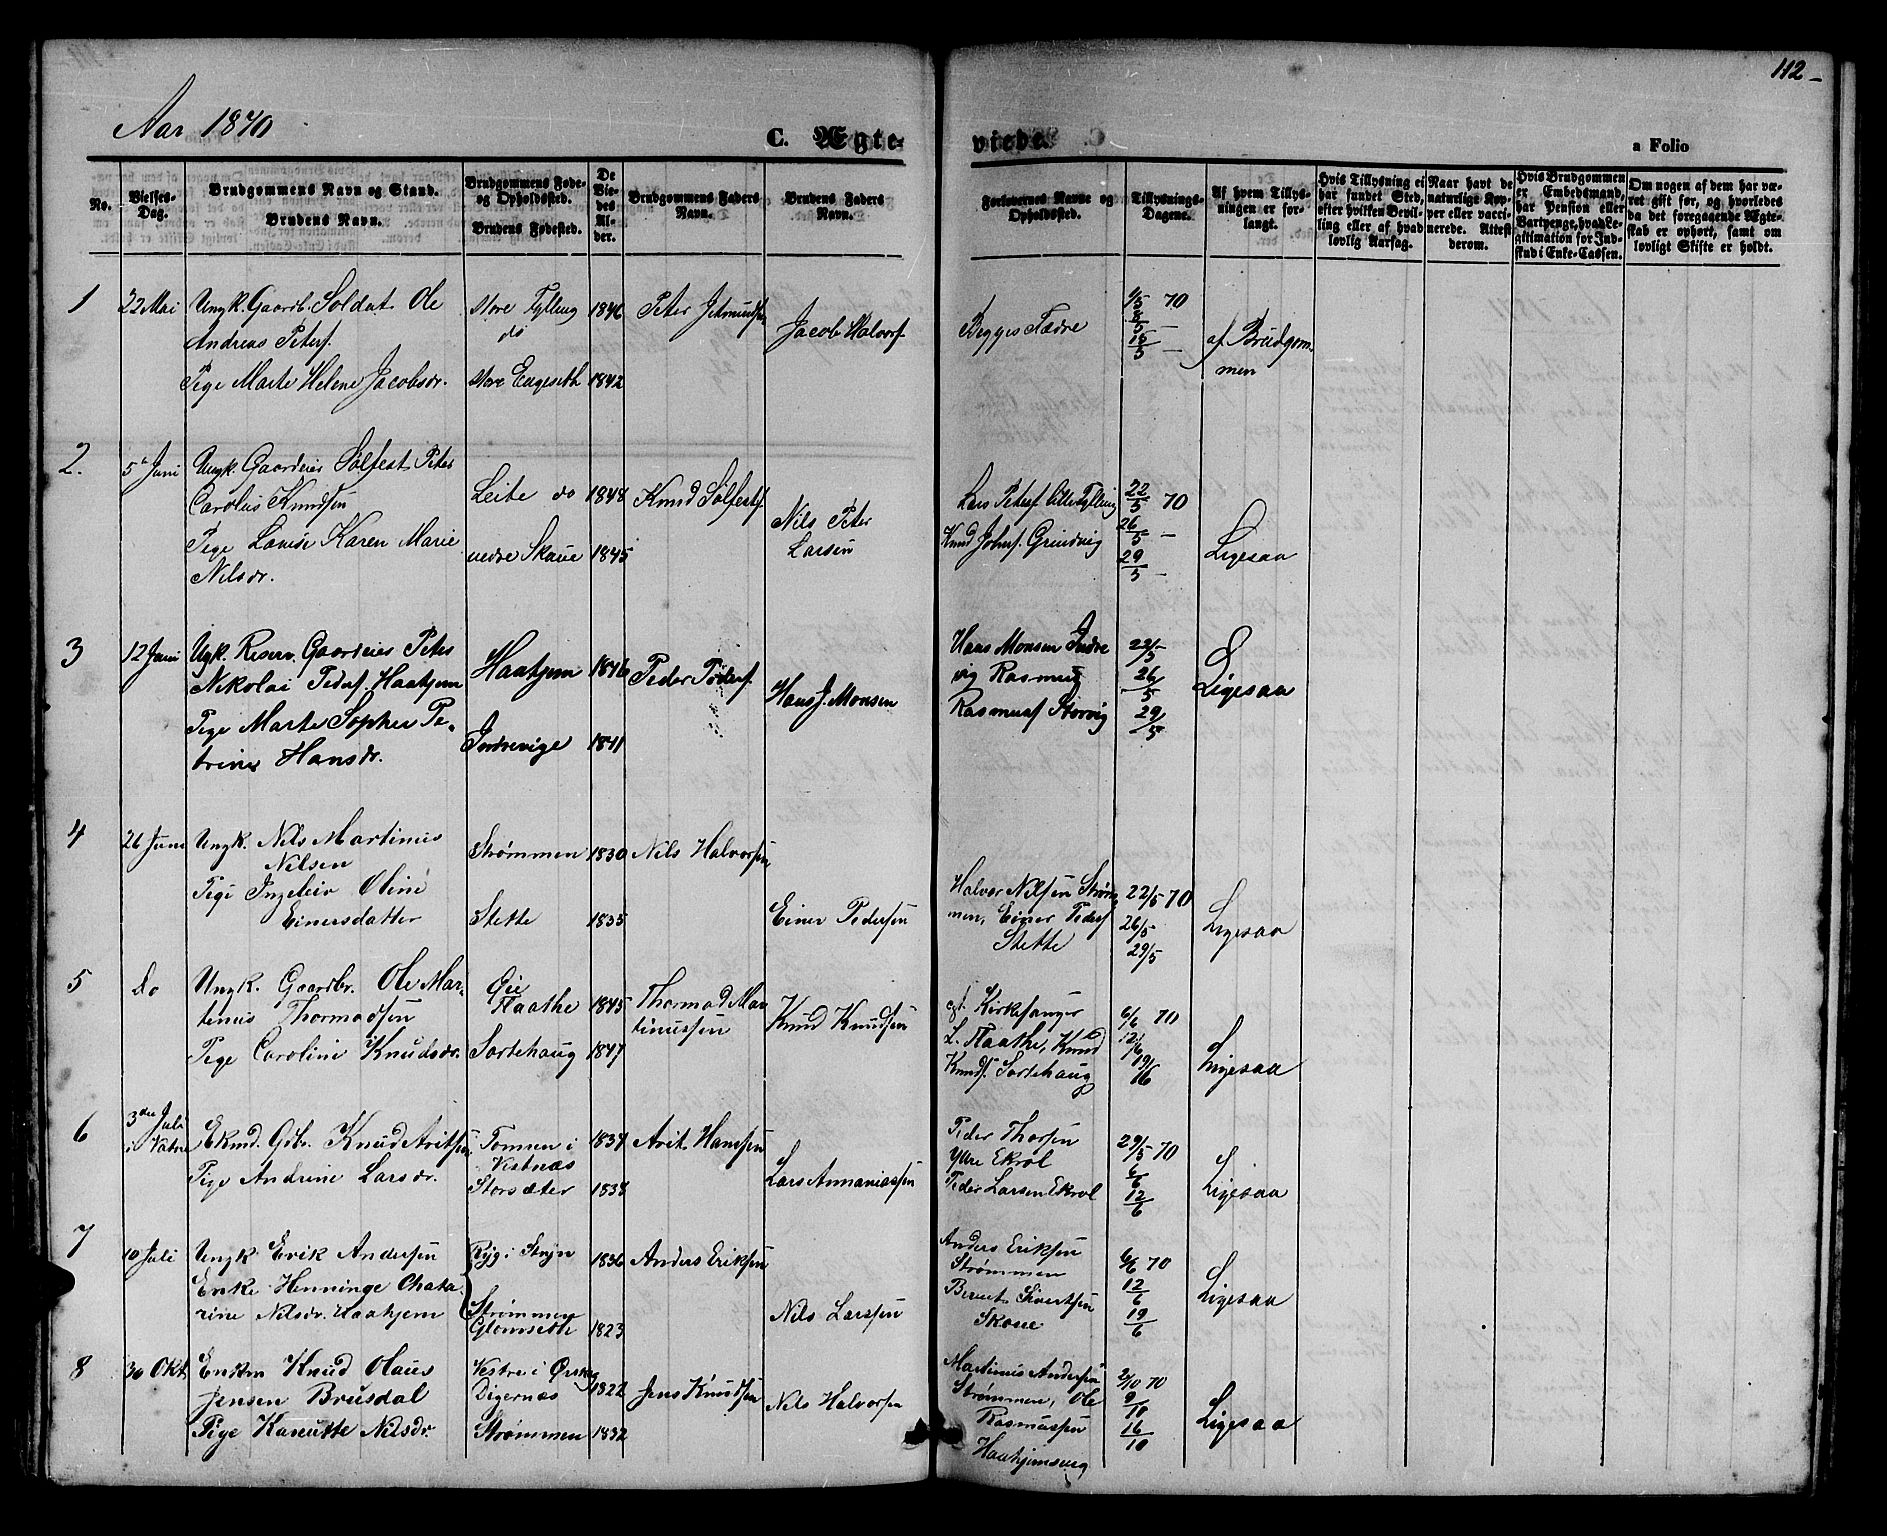 112
Aar 1870
C. Ægte-
viede.
a Folio
No.
Vielses-Dag.
Brudgommens Navn og Stand.
Brudens Navn.
Brudgommens Føde- og Opholdssted.
Brudens Fødested.
De Vie-des Al-der.
Brudgommens Faders Navn.
Brudens Faders Navn.
Forlovernes Navne og Opholdssted.
Tillysnings-Dagene.
Af hvem Tillys-ningen er for-langt.
Hvis Tillysning ei har fundet Sted, efter hvilken Bevil-ling eller af hvad lovlig Aarsag.
Naar havt de naturlige Kop-per eller vacci-nerede. Attest derom.
Hvis Brudgommen er Embedsmand, har Pension eller Vartpenge, hvad Le-gitimation for Ind-skud i Enke-Cassen.
Om nogen af dem har væ-ret gift før, og hvorledes da det foregaaende Ægte-skab er ophørt, samt om lovligt Skifte er holdt.
1
22 Mai
Ungk. Gaardb. Soldat Ole
Andreas Petersf.
Pige Marte Helene Jacobsdr.
Store Fylling
do
Store Engeseth
1846
1842
Peter Jetmundsen
Jacob Halvorsf.
Begges Fædre
1/5 70
8/5 —
15/5 —
af Brudgom-
men
2.
5te Juni
Ungk. Gaardeier Sølfest Peter
Carolus Knudsen
Pige Lovise Karen Marie
Nilsdr.
Leite do
nedre Skaue
1848
1845
Knud Sølfestsf.
Nils Peter
Larsen
Lars Petersf. Lille Fylling
Knud Johnsf. Grindvig
22/5 70
26/5 —
29/5 —
Ligesaa
3
12 Juni
Ugk. Reserv. Gaardeier Peter
Nikolai Pedersf. Haahjem
Pige Marte Sophie Pe-
trine Hansdr.
Haahjem
Indrevige
1846
1841
Peder Pedersf.
Hans J. Monsen
Hans Monsen Indre
vig Rasmus
Rasmussf Storvig
22/5
26/5
29/5
Ligesaa
4
26 Juni
Ungk. Nils Martinus
Nilsen
Pige Ingeleiv Oline
Einersdatter
Strømmen
Stette
1830
1835
Nils Halvorsen
Einer Pedersen
Halvor Nilsen Strøm-
men, Einer Pedersf
Stette
22/5 70
26/5
29/5
Ligesaa
5
do
Ungk. Gaardbr. Ole Mar-
tinus Thormodsen
Pige Caroline Knudsdr.
Øie
Flaathe
Sortehaug
1845
1847
Thormod Mar
tinussen
Knud Knudsen
cst. Kirkesanger
L. Flaathe, Knud
Knudsf. Sortehaug
6/6 70
12/6
19/6
Ligesaa
6
3die Juli
i Vatne
Ekmd. Gdbr. Knud Aritsen
Pige Andrine Larsdr.
Tomren i
Vestnæs
Storsæter
1837
1838
Arit Hansen
Lars Annaniassen
Peder Thorsen
Ytre Ekrol
Peder Larsen Ekrol
29/5 70
6/6
12/6
Ligesaa
7
10 Juli
Ungk. Erik Andersen
Enke Henninge Chata-
rine Nilsdr. Haahjem
Ryg i Stryn
Strømmen
Glomseth
1836
1823
Anders Eriksen
Nils Larssen
Anders Eriksen
Strømmen
Bernt Sivertsen
Skoue
6/6 70
12/6
19/6
Ligesaa
8
30 Okt
Enkem Knud Olaus
Jensen Brusdal
Pige Kanutte Nilsdr.
Vestre i Ørskog
Digernæs
Strømmen
1822
1832
Jens Knudsen
Nils Halvorsen
Martinus Andersen
Strømmen, Ole
Rasmussen
Haahjemsvig
2/10 70
9/10
16/10
Ligesaa